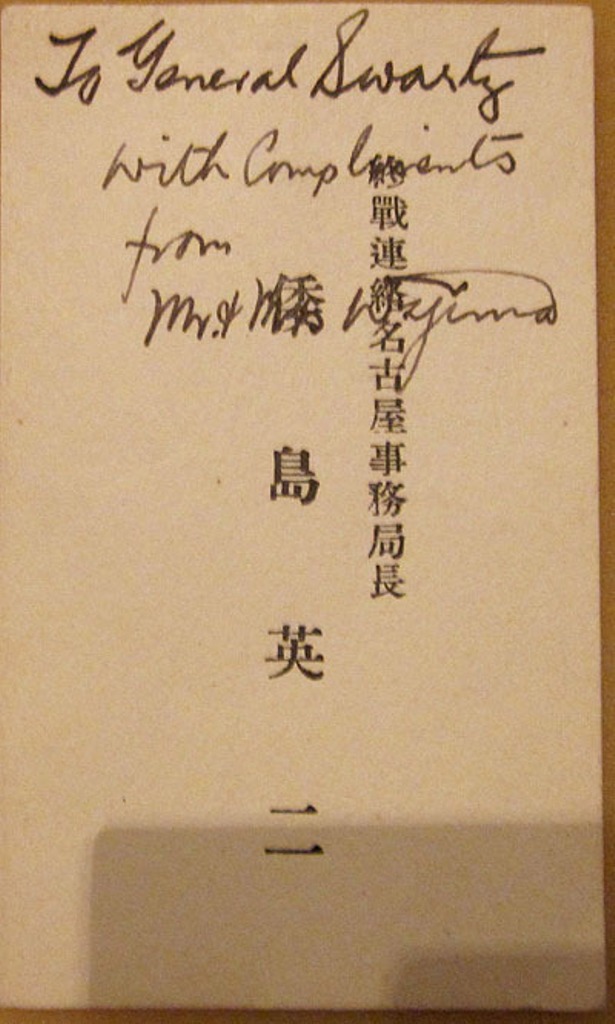 To General Swartz
with Compliments
from
Mr. & Mrs Wajima
終戰連絡名古屋事務局長
倭島英二